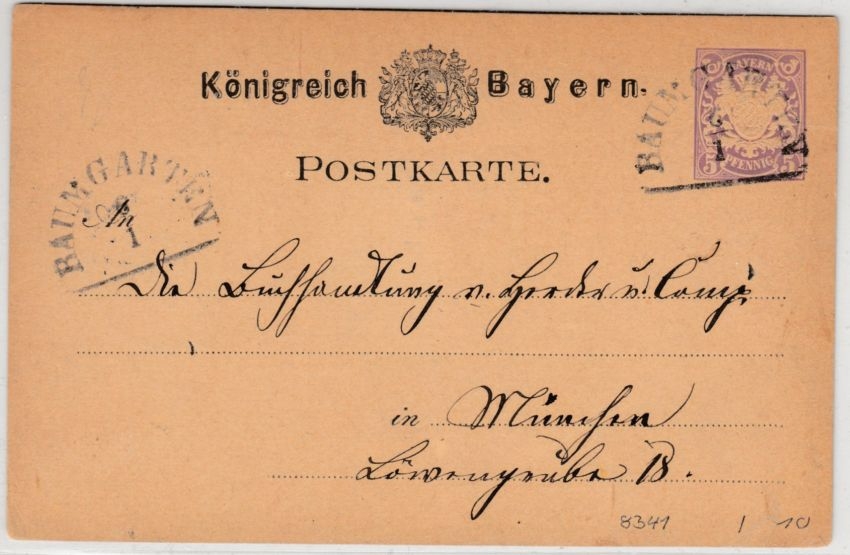 Königreich Bayern.
BAYERN
5 PFENNIG 5
BAUMGARTEN
1
POSTKARTE.
BAUMGARTEN
1
An
Die Buchhandlung v. Herder u. Comp.
in München
Löwengrube 18.
8341 / 10